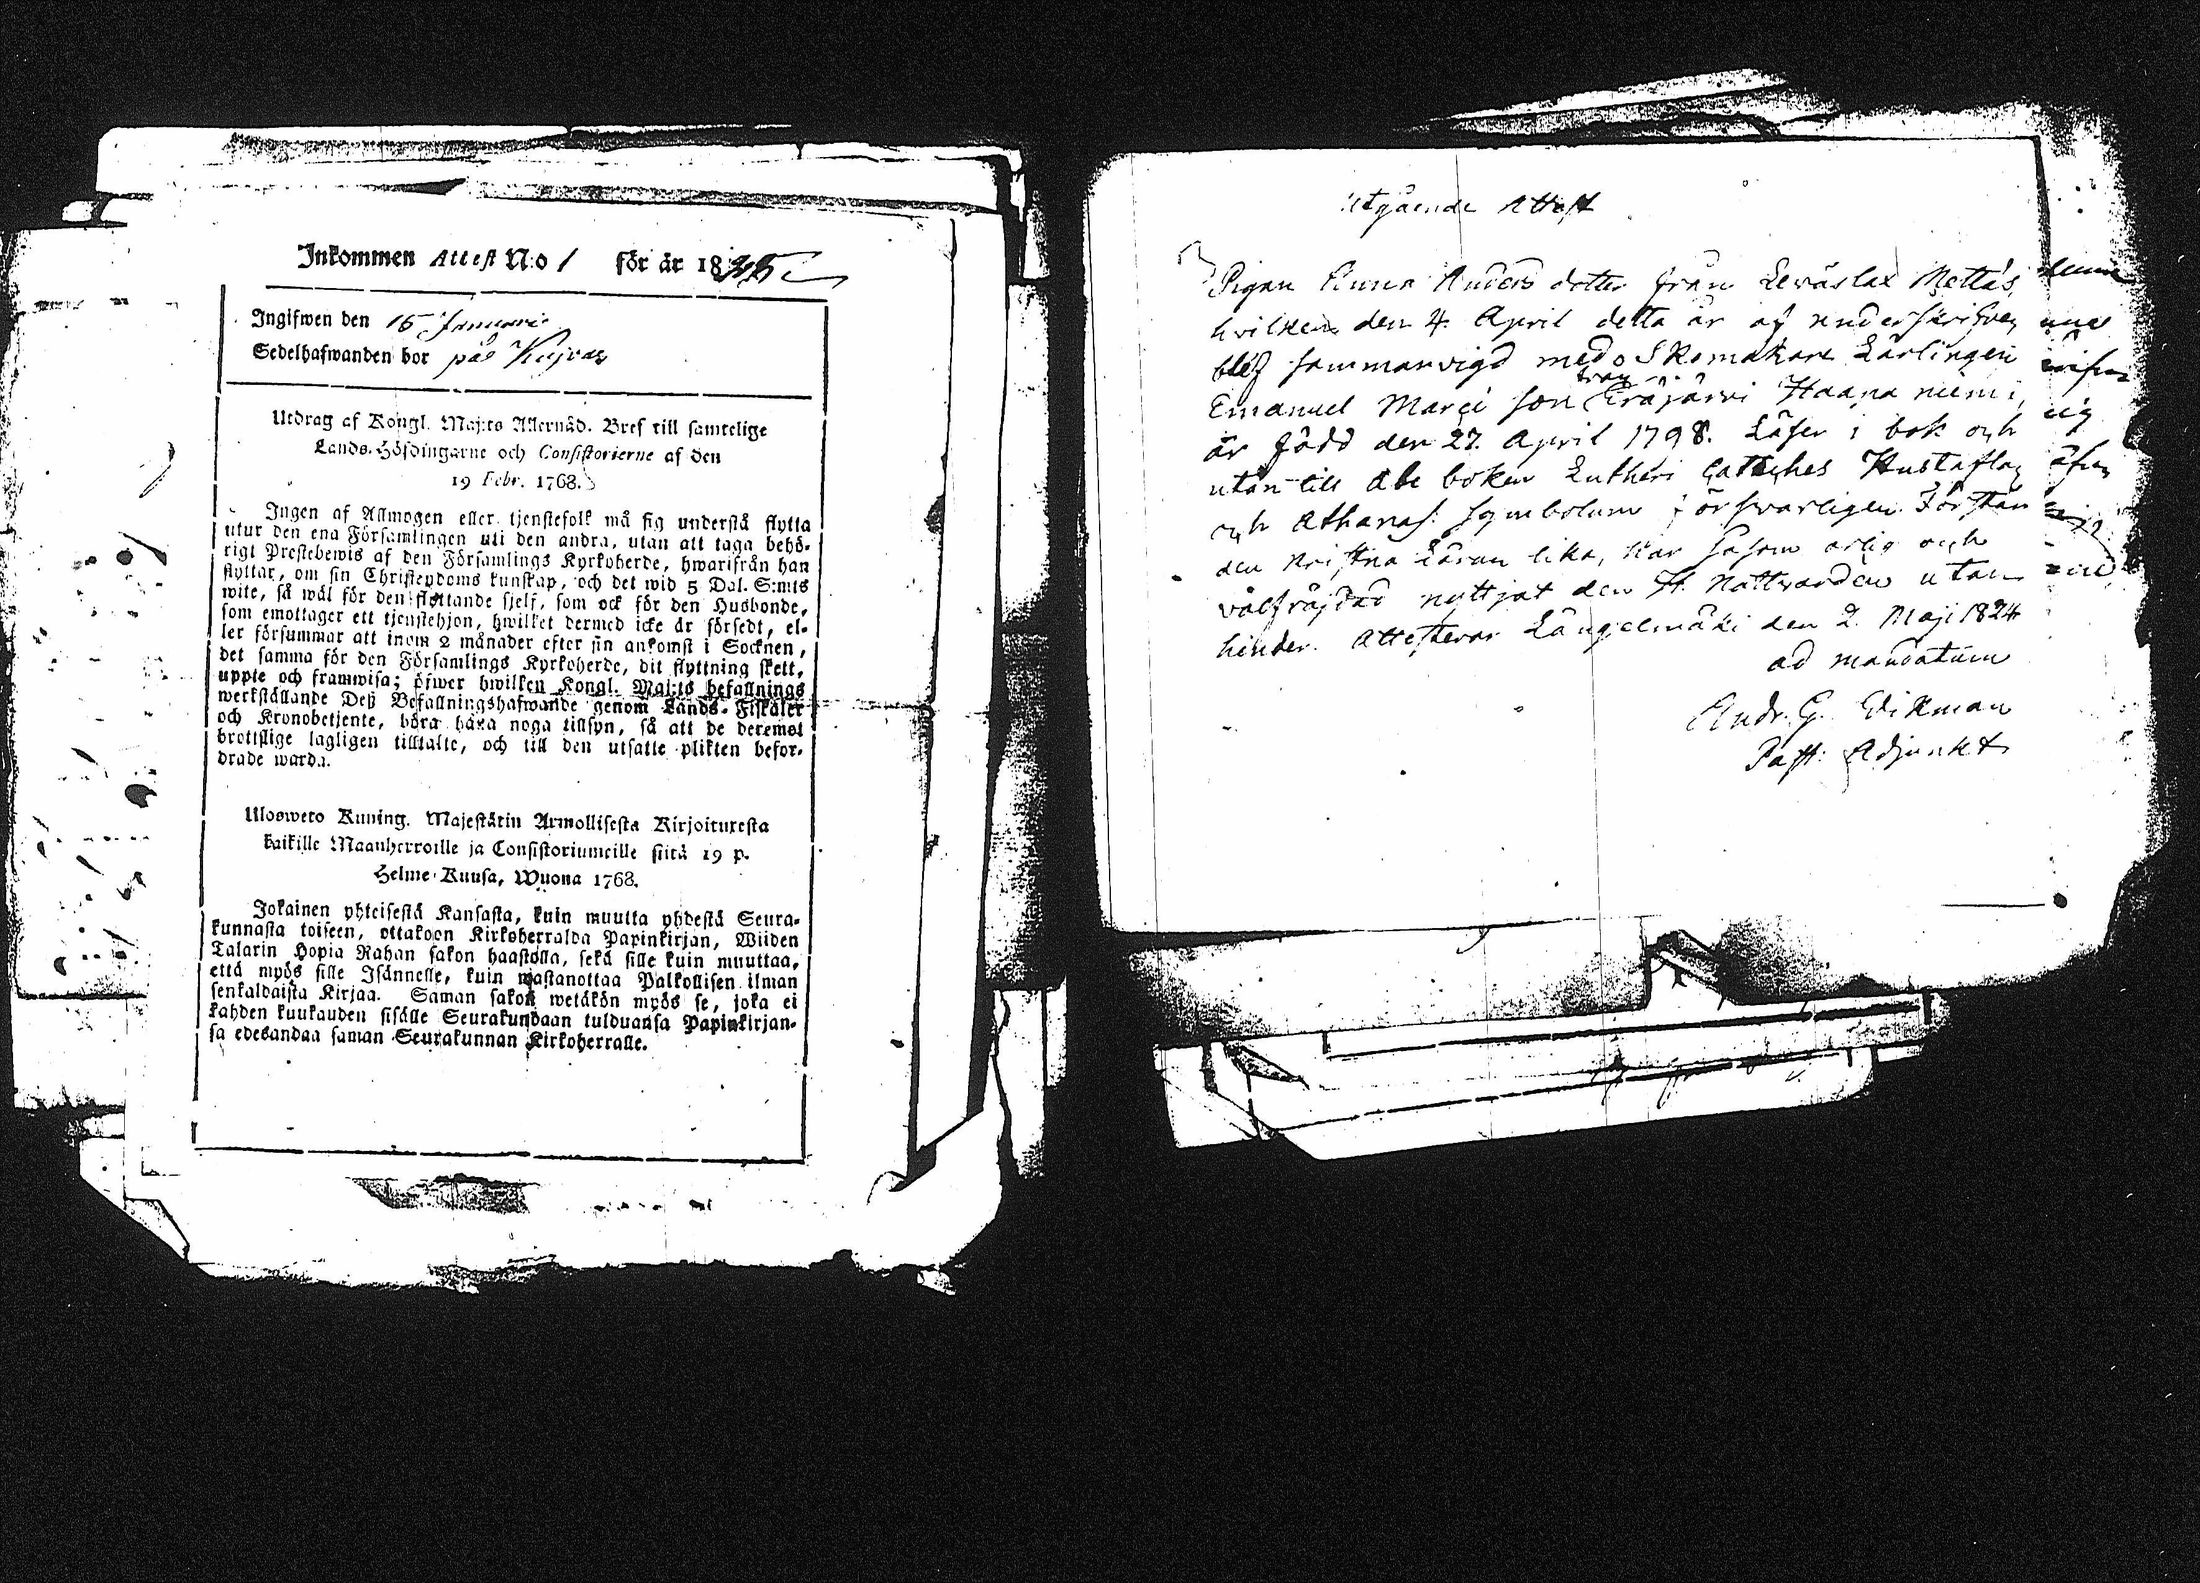 Inkommen Attest N:o 1 för år 1835
Ingifwen den 15 Januari
Sedelhafwanden bor på Kujvas
Utdrag af Kongl. Maj:ts Allernåd. Bref till samtelige
Lands-Höfdingarne och Consistorierne af den
19 Febr. 1768.
Ingen af Allmogen eller tjenstefolk må sig understå flytta
utur den ena Församlingen uti den andra, utan att taga behö-
rigt Prestebewis af den Församlings Kyrkoherde, hwarifrån han
flyttar, om sin Christendoms kunskap, och det wid 5 Dal. S:mts
wite, så wäl för den flyttande sjelf, som ock för den Husbonde,
som emottager ett tjenstehjon, hwilket dermed icke är försedt, el-
ler försummar att inom 2 månader efter sin ankomst i Socknen,
det samma för den Församlings Kyrkoherde, dit flyttning skett,
uppte och framwisa; öfwer hwilken Kongl. Maj:ts befallnings
werkställande Deß Befallningshafwande genom Lands-Fiskaler
och Kronobetjente, böra hafwa noga tillsyn, så att de deremot
brottslige lagligen tilltalte, och till den utsatte plikten befor-
drade warda.
Ulosweto Kuning. Majestätin Armollisesta Kirjoituxesta
kaikille Maanherroille ja Consistoriumeille siitä 19 p.
Helme-Kuusa, Wuona 1768.
Jokainen yhteisestä Kansasta, kuin muutta yhdestä Seura-
kunnasta toiseen, ottakoon Kirkoherralda Papinkirjan, Wiiden
Talarin Hopia Rahan sakon haastolla, sekä sille kuin muuttaa,
että myös sille Isännelle, kuin wastanottaa Palkollisen ilman
senkaldaista Kirjaa. Saman sakon wetäkön myös se, joka ei
kahden kuukauden sisälle Seurakundaan tulduansa Papinkirjan-
sa edesandaa saman Seurakunnan Kirkoherralle.
Utgående Attest
Pigan Anna Anders dotter från Lewäslax Mattas
hvilken den 4. April detta år af underskrifven
blef sammanvigd med Skomakare Lärlingen
Emanuel Marci son från Eräjärvi Haapaniemi,
är född den 27. April 1798. Läser i bok och
utan till Abc boken Lutheri Catches Hustaflan
och Athanas. symbolum försvarligen. Förstår
den kristna Läran lika, har såsom ärlig och
välfräjdad nyttjat den H. Nattvarden utan
hinder. Attesterar Längelmäki den 2. Maji 1824
ad mandatum
Andr. G. Wikman
Past: Adjunkt